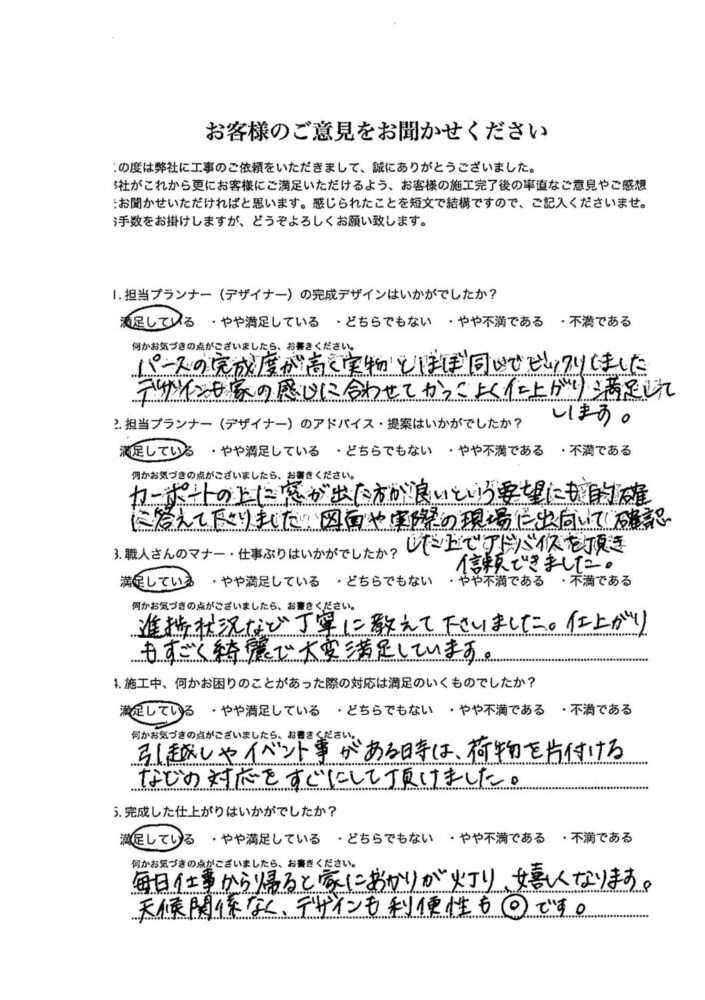 お客様のご意見をお聞かせください
の度は弊社に工事のご依頼をいただきまして、誠にありがとうございました。
社がこれから更にお客様にご満足いただけるよう、お客様の施工完了後の率直なご意見やご感想
お聞かせいただければと思います。感じられたことを短文で結構ですので、ご記入くださいませ。
手数をお掛けしますが、どうぞよろしくお願い致します。
1. 担当プランナー（デザイナー）の完成デザインはいかがでしたか？
満足している ・やや満足している ・どちらでもない ・やや不満である ・不満である
何かお気づきの点がございましたら、お書きください。
パースの完成度が高く実物とほぼ同じでビックリしました
デザインも家の感じに合わせてかっこよく仕上がり満足して
います。
2. 担当プランナー（デザイナー）のアドバイス・提案はいかがでしたか？
満足している ・やや満足している ・どちらでもない ・やや不満である ・不満である
何かお気づきの点がございましたら、お書きください。
カーポートの上に窓が出た方が良いという要望にも的確
に答えて下さりました。図面や実際の現場に出向いて確認
した上でアドバイスを頂き
信頼できました。
3. 職人さんのマナー・仕事ぶりはいかがでしたか？
満足している ・やや満足している ・どちらでもない ・やや不満である ・不満である
何かお気づきの点がございましたら、お書きください。
進捗状況など丁寧に教えて下さいました。仕上がり
もすごく綺麗で大変満足しています。
4. 施工中、何かお困りのことがあった際の対応は満足のいくものでしたか？
満足している ・やや満足している ・どちらでもない ・やや不満である ・不満である
何かお気づきの点がございましたら、お書きください。
引越しやイベント事がある時は、荷物を片付ける
などの対応をすぐにして頂けました。
5. 完成した仕上がりはいかがでしたか？
満足している ・やや満足している ・どちらでもない ・やや不満である ・不満である
何かお気づきの点がございましたら、お書きください。
毎日仕事から帰ると家にあかりが灯り、嬉しくなります。
天候関係なく、デザインも利便性も◎です。